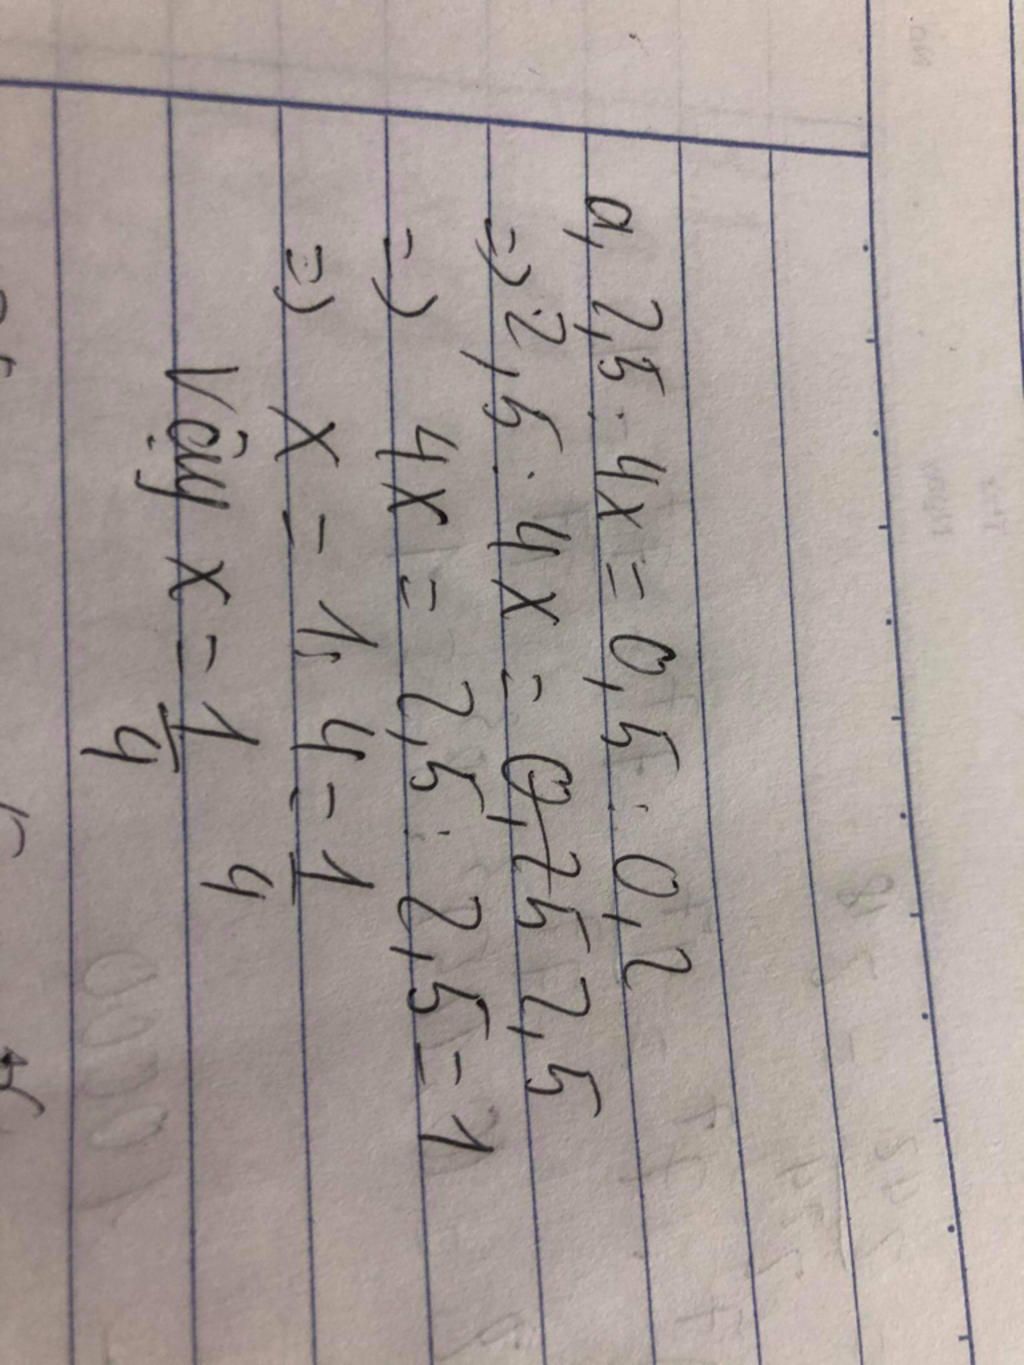 a, 2,5 : 4x = 0,5 : 0,2
=> 2,5 : 4x = 2,5
=> 4x = 2,5 : 2,5 = 1
=> x = 1 : 4 = 1/4
Vậy x = 1/4